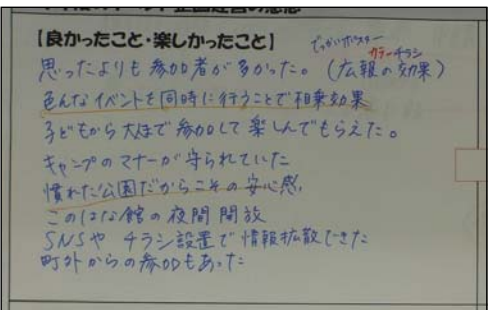 【良かったこと・楽しかったこと】
でっかいポスター
カラーチラシ
思ったよりも参加者が多かった。(広報の効果)
色んなイベントを同時に行うことで相乗効果
子どもから大人まで参加して楽しんでもらえた。
キャンプのマナーが守られていた
慣れた公園だからこその安心感。
このはな館の夜間開放
SNSや チラシ設置で情報拡散できた
町外からの参加もあった